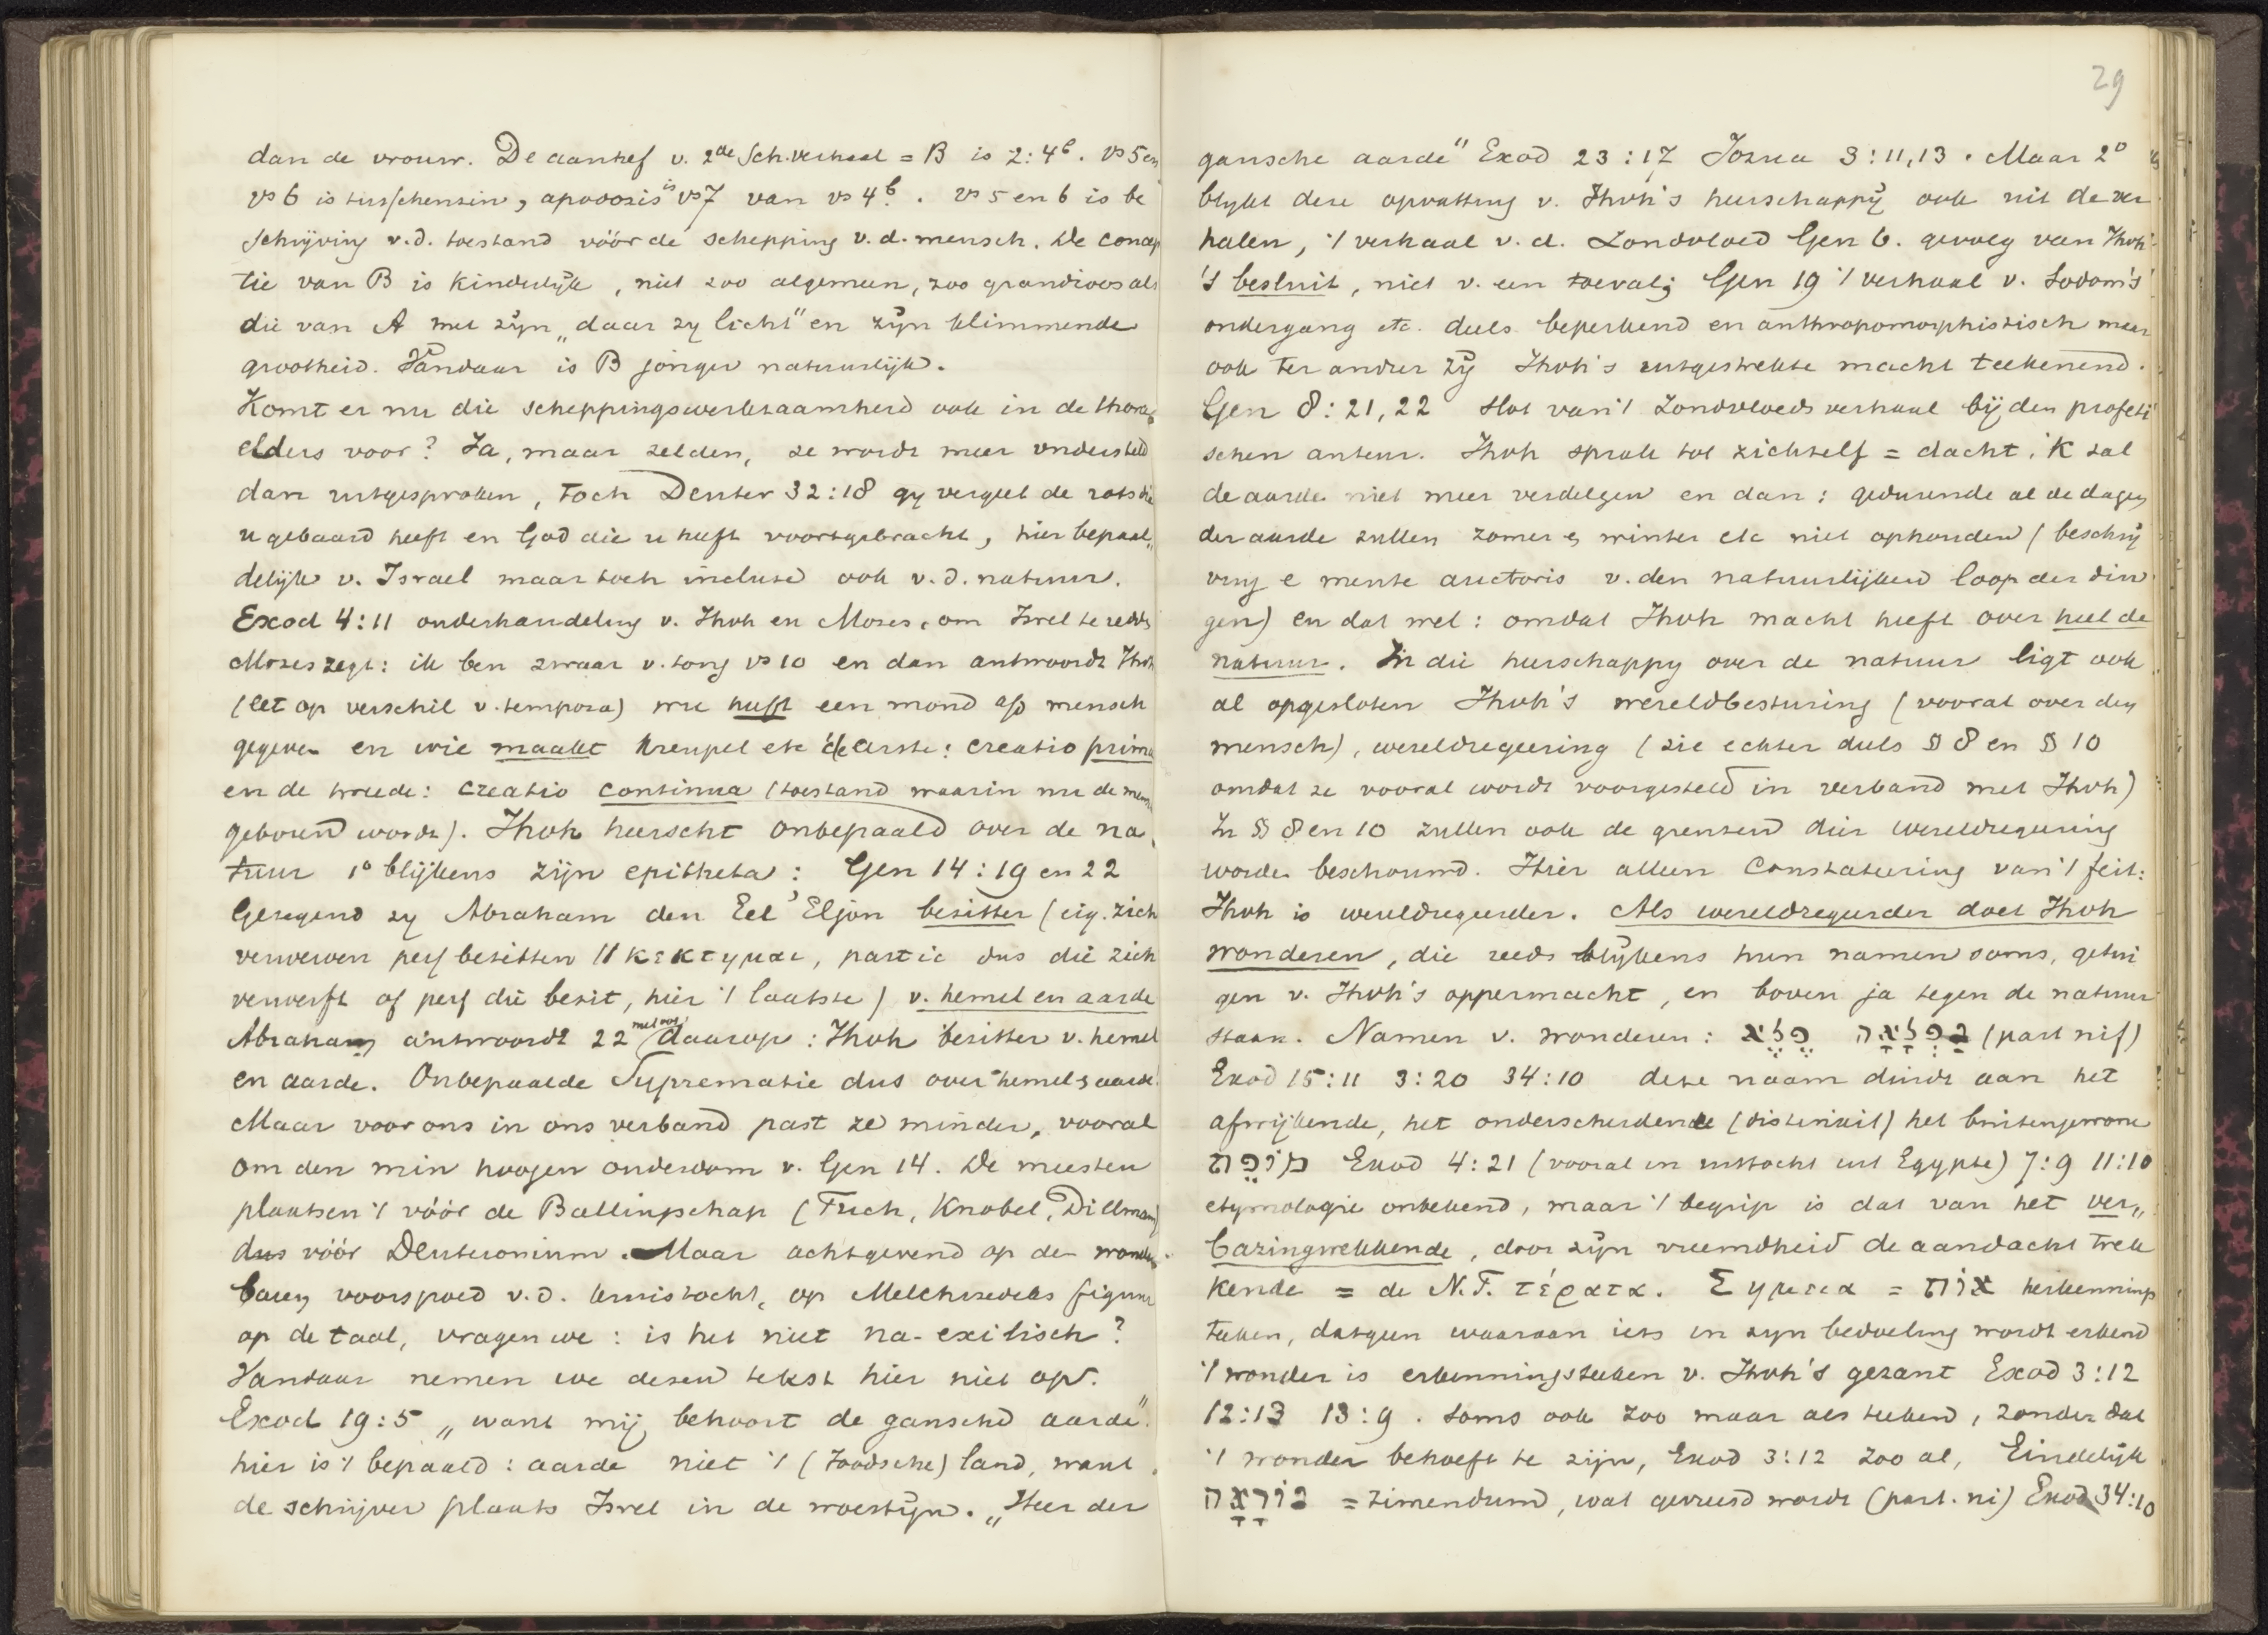 dan de vrouw. De aanhef v. 2de Sch. verhaal = B is 2:4b. vs 5 en
vs 6 is tusschenzin, apodosis is vs 7 van vs 4b. vs 5 en 6 is be
schrijving v.d. toestand vóór de schepping v.d. mensch. De concep
tie van B is kinderlijk, niet zoo algemeen, zoo grandioos als
die van A met zijn „daar zij licht" en zijn klimmende
grootheid. Vandaar is B jonger natuurlijk.
Komt er nu die scheppingswerkzaamheid ook in de thora
elders voor? Ja, maar zelden, ze wordt meer ondersteld
dan uitgesproken, toch Deuter 32:18 gy vergeet de rots die
u gebaard heeft en God die u heeft voortgebracht, hier bepaal„
delijk v. Israel maar toch incluse ook v.d. natuur.
Exod 4:11 onderhandeling v. Jhvh en Mozes, om Isrel te redden
Mozes zegt: ik ben zwaar v. tong vs 10 en dan antwoordt Jhvh
(let op verschil v. tempora) wie heeft een mond a/d mensch
gegeven en wie maakt kreupel etc de eerste: creatio prima
en de tweede: creatio continua (toestand waarin nu de mensch
geboren wordt). Jhvh heerscht onbepaald over de na„
tuur 1o blijkens zijn epitheta: Gen 14:19 en 22
Gezegend zy Abraham den Eel 'Eljon bezitter (eig. zich
verwerven perf bezitten // κεκτημαι, partic dus die zich
verwerft of perf die bezit, hier 't laatste) v. hemel en aarde
Abraham antwoordt 22 met ool daarop: Jhvh bezitter v. hemel
en aarde. Onbepaalde Suprematie dus over hemel & aarde.
Maar voor ons in ons verband past ze minder, vooral
om den min hoogen ouderdom v. Gen 14. De meesten
plaatsen 't vóór de Ballingschap (Tuch, Knobel, Dillmann)
dus vóór Deuteronium. Maar achtgevend op de wonder
baren voorspoed v.d. kruistocht, op Melchizedeks figuur
op de taal, vragen we: is het niet na-exilisch?
Vandaar nemen we dezen tekst hier niet op.
Exod 19:5 „want mij behoort de gansche aarde".
hier is 't bepaald: aarde niet 't (Joodsche) land, want
de schrijver plaats Isrel in de woestijn. „Heer der
29
gansche aarde" Exod 23:17 Jozua 3:11,13. Maar 2o
blykt deze opvatting v. Jhvh's heerschappij ook uit de ver
halen, 't verhaal v.d. Zondvloed Gen 6. gevolg van Jhvh
's besluit, niet v. een toeval; Gen 19 't verhaal v. Sodom's
ondergang etc. deels beperkend en anthropomorphistisch maar
ook ter ander zij Jhvh's uitgestrekte macht teekenend.
Gen 8:21,22 slot van 't zondvloedsverhaal bij den profeti
schen auteur. Jhvh sprak tot zichzelf = dacht, 'k zal
de aarde niet meer verdelgen en dan: gedurende al de dagen
der aarde zullen zomer & winter etc niet ophouden (beschrij
ving e mente auctoris v. den natuurlijken loop der din
gen) en dat wel: omdat Jhvh macht heeft over heel de
natuur. In die heerschappy over de natuur ligt ook
al opgesloten Jhvh's wereldbesturing (vooral over den
mensch), wereldregeering (zie echter deels § 8 en § 10
omdat ze vooral wordt voorgesteld in verband met Jhvh)
In § 8 en 10 zullen ook de grenzen dier wereldregeering
worden beschouwd. Hier alleen Constateering van 't feit:
Jhvh is wereldregeerder. Als wereldregeerder doet Jhvh
wonderen, die reeds blijkens hun namen soms, getui
gen v. Jhvh's oppermacht, en boven ja tegen de natuur
staan. Namen v. wonderen: פֶלֶא נִפְלָאָה (part nif)
Exod 15:11 3:20 34:10 deze naam duidt aan het
afwijkende, het onderscheidende (distinxit) het buitengewone
מוֹפֵת Exod 4:21 (vooral in uittocht uit Egypte) 7:9 11:10
etymologie onbekend, maar 't begrip is dat van het ver„
bazingwekkende, door zijn vreemdheid de aandacht trek
kende = de N.T. τέρατα. Σημεια = אוֹת herkennings
teeken, datgeen waaraan iets in zyn bedoeling wordt erkend
't wonder is erkenningsteeken v. Jhvh's gezant Exod 3:12
12:13 13:9. Soms ook zoo maar als teeken, zonder dat
't wonder behoeft te zijn, Exod 3:12 zoo al, Eindelijk
נוֹרָאָה = timendum, wat gevreesd wordt (part. ni) Exod 34:10